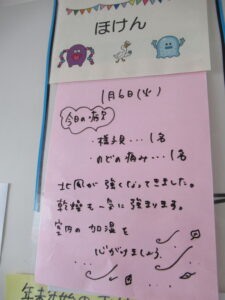 ほけん
1月6日(火)
今日の病欠
・様子見…1名
・のどの痛み…1名
北風が強くなってきました。
乾燥も一気に強まります。
室内の加湿を
心がけましょう。
年末年始の